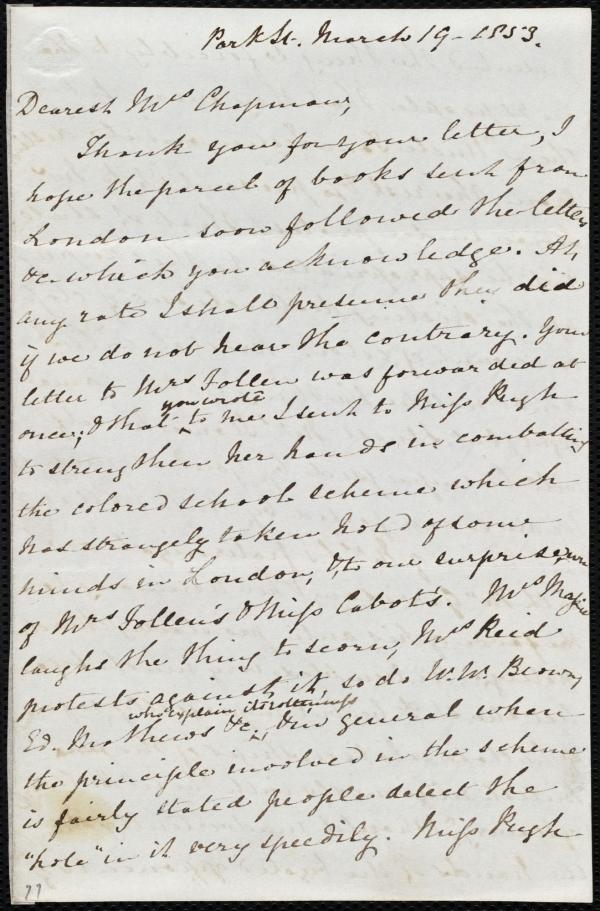 Park St. March 19 - 1853.
Dearest Mrs Chapman,
Thank you for your letter, I
hope the parcel of books sent from
London soon followed the letters
&c which you acknowledge. At
any rate I shall presume they did
if we do not hear the contrary. Your
letter to Mrs Follen was forwarded at
you wrote
once; & that to me I sent to Miss Pugh
to strengthen her hands in combatting
the colored school scheme which
has strangely taken hold of some
minds in London, & to our surprise, even
of Mrs Follen's & Miss Cabot's. Mrs
laughs the thing to scorn, Mrs Reid
protests against it, so do W. W. Brown,
who explain its rottenness
Ed. Mathews &c, & in general when
the principle involved in the scheme
is fairly stated people detect the
"hole" in it very speedily. Miss Pugh
77